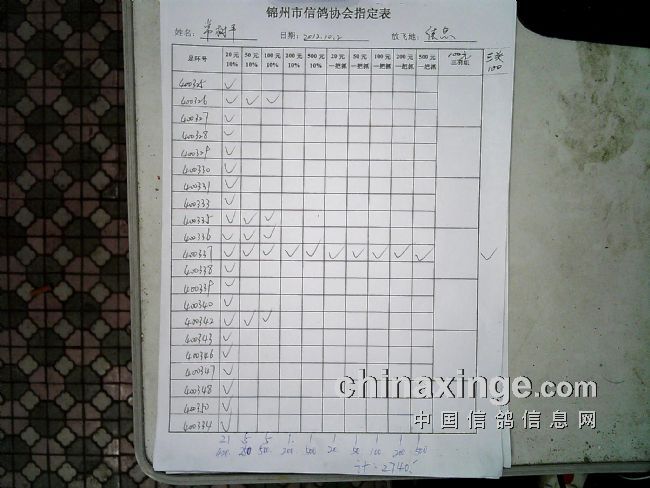 锦州市信鸽协会指定表
姓名: 常树平 日期: 2012.10.2 放飞地:
足环号 20元10% 50元10% 100元10% 200元10% 500元10% 20元一把抓 50元一把抓 100元一把抓 200元一把抓 500元一把抓 100元 三关100
400325 ✓
400326 ✓ ✓ ✓
400327 ✓
400328 ✓
400329 ✓
400330 ✓
400331 ✓
400333 ✓
400335 ✓ ✓ ✓
400336 ✓ ✓ ✓
400337 ✓ ✓ ✓ ✓ ✓ ✓ ✓ ✓ ✓ ✓ ✓
400338 ✓
400339 ✓
400340 ✓
400342 ✓ ✓ ✓
400343 ✓
400346 ✓
400347 ✓
400348 ✓
400350 ✓
400334 ✓
21 5 5 1 1 1 1 1 1 1
420 250 500 200 500 20 50 100 200 500
计: 2740
chinaxinge.com
中国信鸽信息网